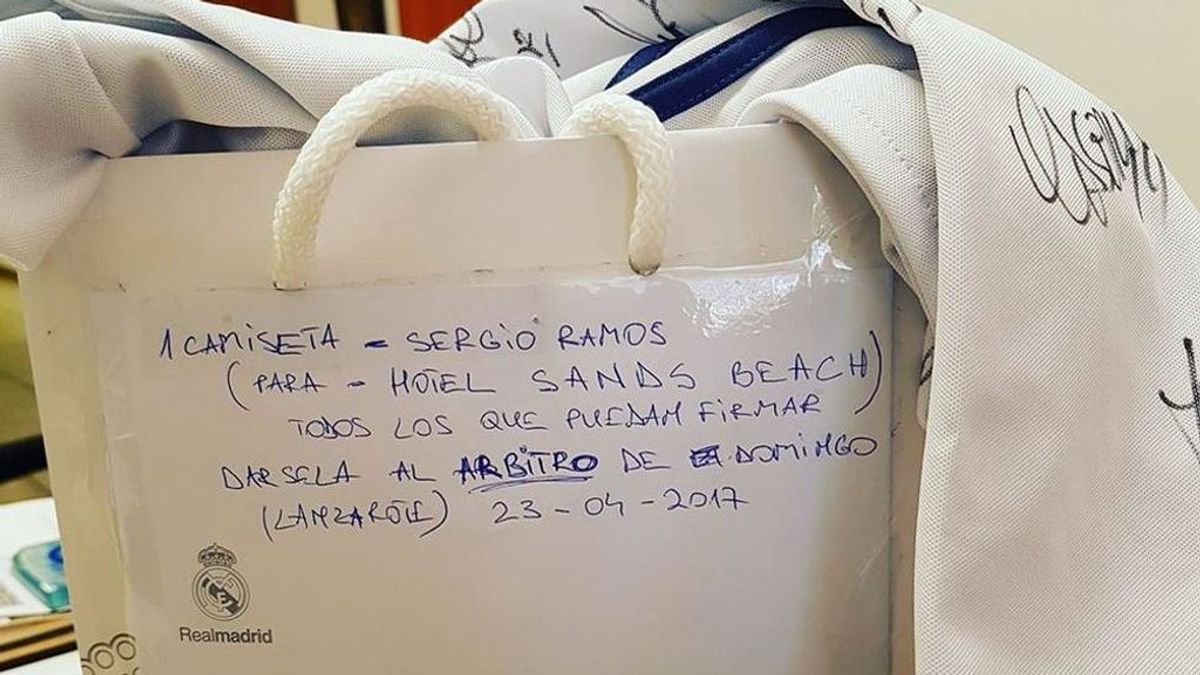 21
1 CAMISETA - SERGIO RAMOS
(PARA - HOTEL SANDS BEACH)
TODOS LOS QUE PUEDAM FIRMAR
DARSELA AL ARBITRO DE DOMINGO
(LANZAROTE) 23-04-2017
Realmadrid